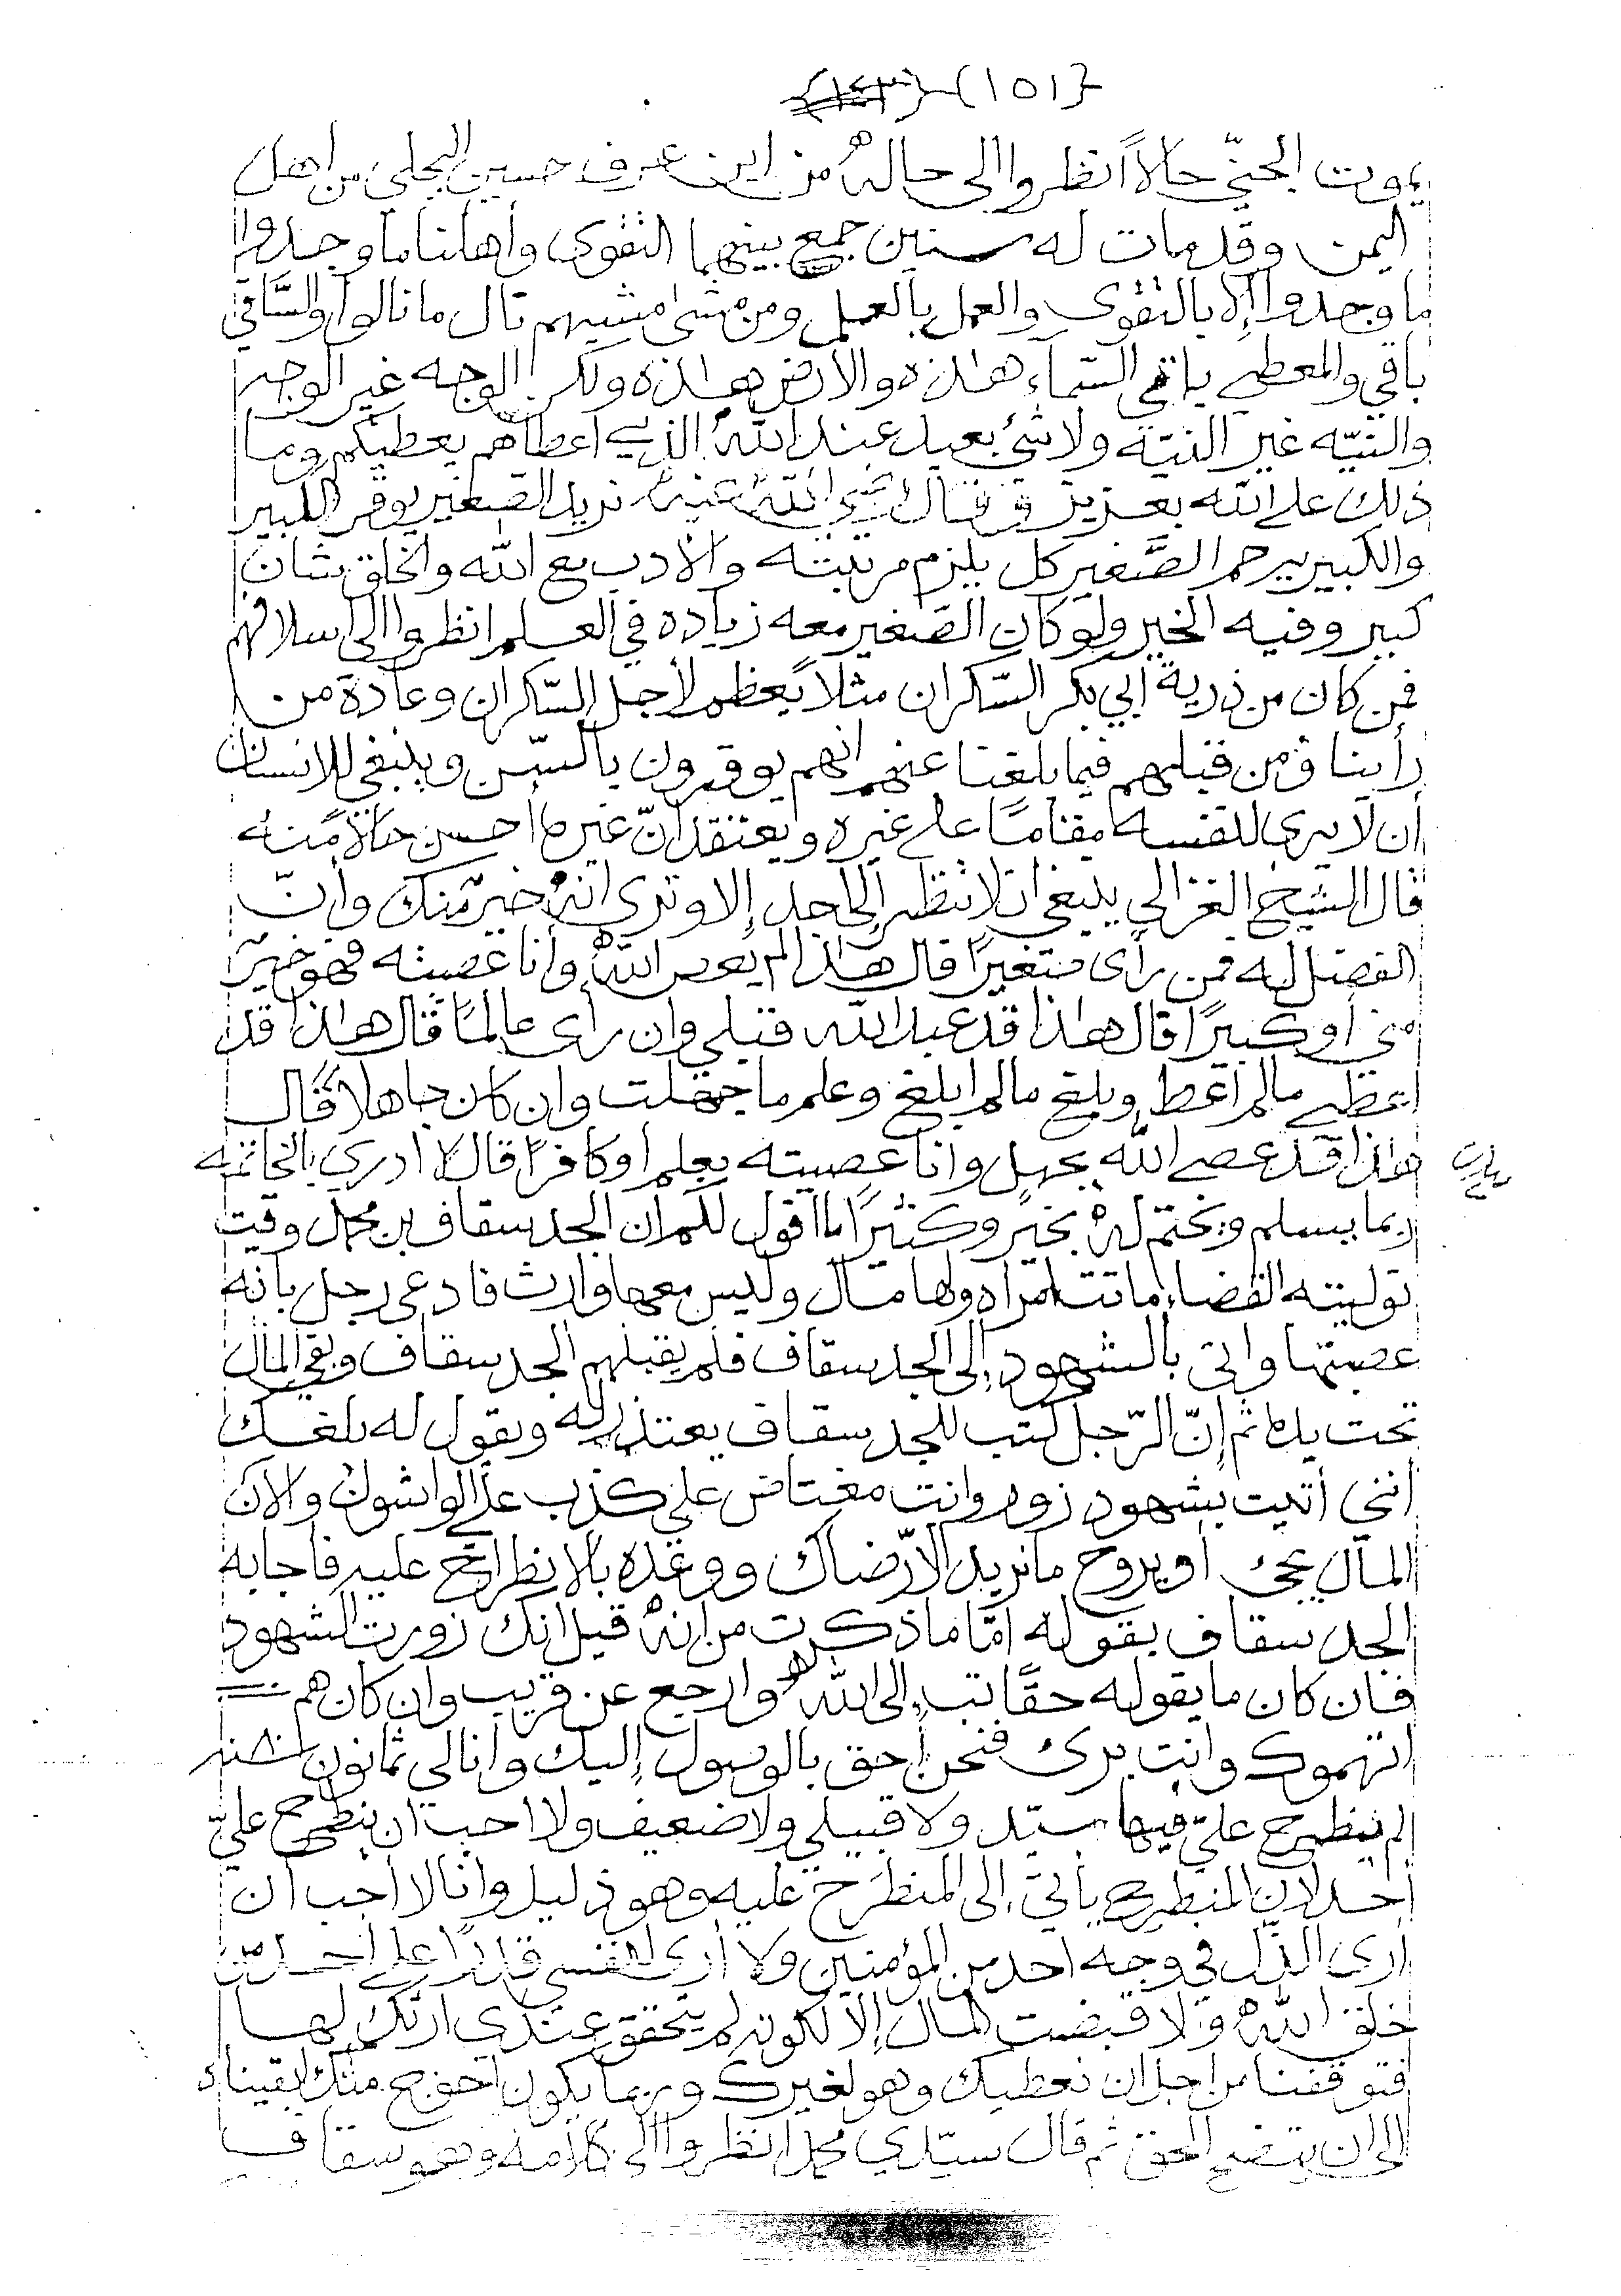 {١٥١}
يموت الجنّي حالاً انظروا الى حاله من اين عرف حسين البجلي من اهل
اليمن وقد مات له سنين جمع بينهما التقوى وأهلنا ما وجدوا
ما وجدوا إلا بالتقوى والعمل بالعمل ومن مشى مشيهم نال ما نالوا والسَّاقي
باقي والمعطي باقي السّماء هذه والارض هذه ولكن الوجه غير الوجه
والنيّه غير النيّة ولا شئ بعيد عند اللهُ الذي اعطاهم يعطيكم وما
ذلك على الله بعزيز وقال رضي الله عنه نريد الصغير يوقر الكبير
والكبير يرحم الصَّغير كل يلزم مرتبته والأدب مع الله والخلق شان
كبير وفيه الخير ولو كان الصّغير معه زياده في العلم انظروا الى اسلافهم
فمن كان من ذرية ابي بكر السّكران مثلاً يُعظم لأجل السّكران وعادة من
رأينا ومن قبلهم فيما بلغنا عنهم انهم يوقرون بالسّن وينبغي للانسان
أن لا يرى لنفسه مقاماً على غيره ويعتقد انّ غيره احسن حالاً منه
قال الشيخ الغزالي ينبغي ان لا تنظر إلى احد إلا وترى انهُ خير مّنك وأنّ
الفضل له فمن رأى صغيرًا قال هذا لم يعص اللهُ وأنا عصيته فهو خيرٌ
مني أو كبيرًا قال هذا قد عبد الله قبلي وان رأى عالمًا قال هذا قد
اعطي مالم أعط وبلغ مالم ابلغ وعلم ما جهلت وان كان جاهلاً قال
هذا قد عصى الله بجهل وانا عصيته بعلم أو كافرًا قال لا ادري بالخاتمه
ربما يسلم ويختم لهُ بخير وكثيرًا ما اقول لكم ان الجد سقاف بن محمد وقت
توليته القضاء ماتت امراه ولها مال وليس معها وارث فادعى رجل بأنه
عصبتها واتى بالشهود إلى الجد سقاف فلم يقبلهم الجد سقاف وبقي المال
تحت يده ثم إنّ الرّجل كتب للجد سقاف يعتذر له ويقول له بلغك
أنني أتيت بشهود زور وانت مغتاض علي كذب عليّ الواشون والآن
المال يجئ أو يروح ما نريد الا رّضاك ووعده بالانطراح عليه فاجابه
الجد سقاف بقوله امّا ما ذكرت من انهُ قيل انك زورت الشهود
فان كان ما يقوله حقًّا تب إلى اللهُ وارجع عن قريب وان كان هم
اتهموك وأنت برئ فنحن أحق بالوصول إليك وانا لي ثمانون سنه
لم ينطرح عليّ فيها سيّد ولا قبيلي ولا ضعيف ولا احب ان ينطرح عليّ
احد لان المنطرح يأتي إلى المنطَرح عليه وهو ذليل وانا لا احب ان
ارى الذل في وجه احد من المؤمنين ولا أرى لنفسي قدرًا على احد من
خلق اللهُ ولا قبضت المال إلاّ لكونه لم يتحقق عندي ارثك لها
فتوقفنا من اجل ان نعطيك وهو لغيرك وربما يكون احوج منك ابقيناه
الى ان يتضح الحق ثم قال سيّدي محمد انظروا الى كلامه وهو سقاف